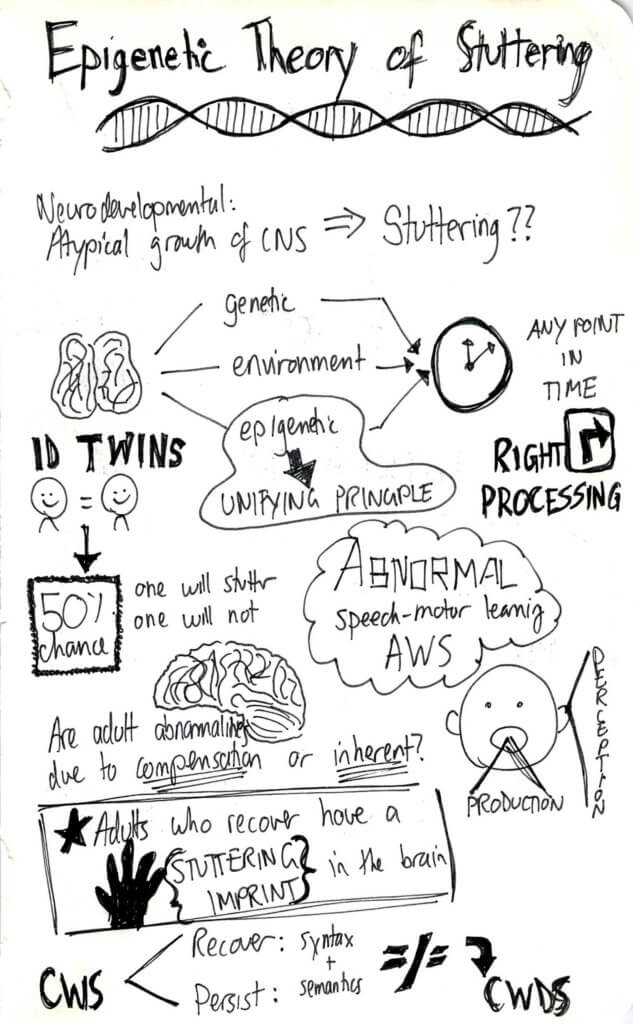 Epigenetic Theory of Stuttering
Neurodevelopmental:
Atypical growth of CNS ⇒ Stuttering??
genetic
environment
epigenetic
UNIFYING PRINCIPLE
ANY POINT
IN
TIME
ID TWINS
=
RIGHT
PROCESSING
50%
chance
one will stuttr
one will not
ABNORMAL
speech-motor learnig
AWS
Are adult abnormalings
due to compensation or inherent?
PERCEPTION
PRODUCTION
Adults who recover have a
{STUTTERING
IMPRINT} in the brain
CWS
Recover: syntax
+
Persist: semantics
=/=
CWDS